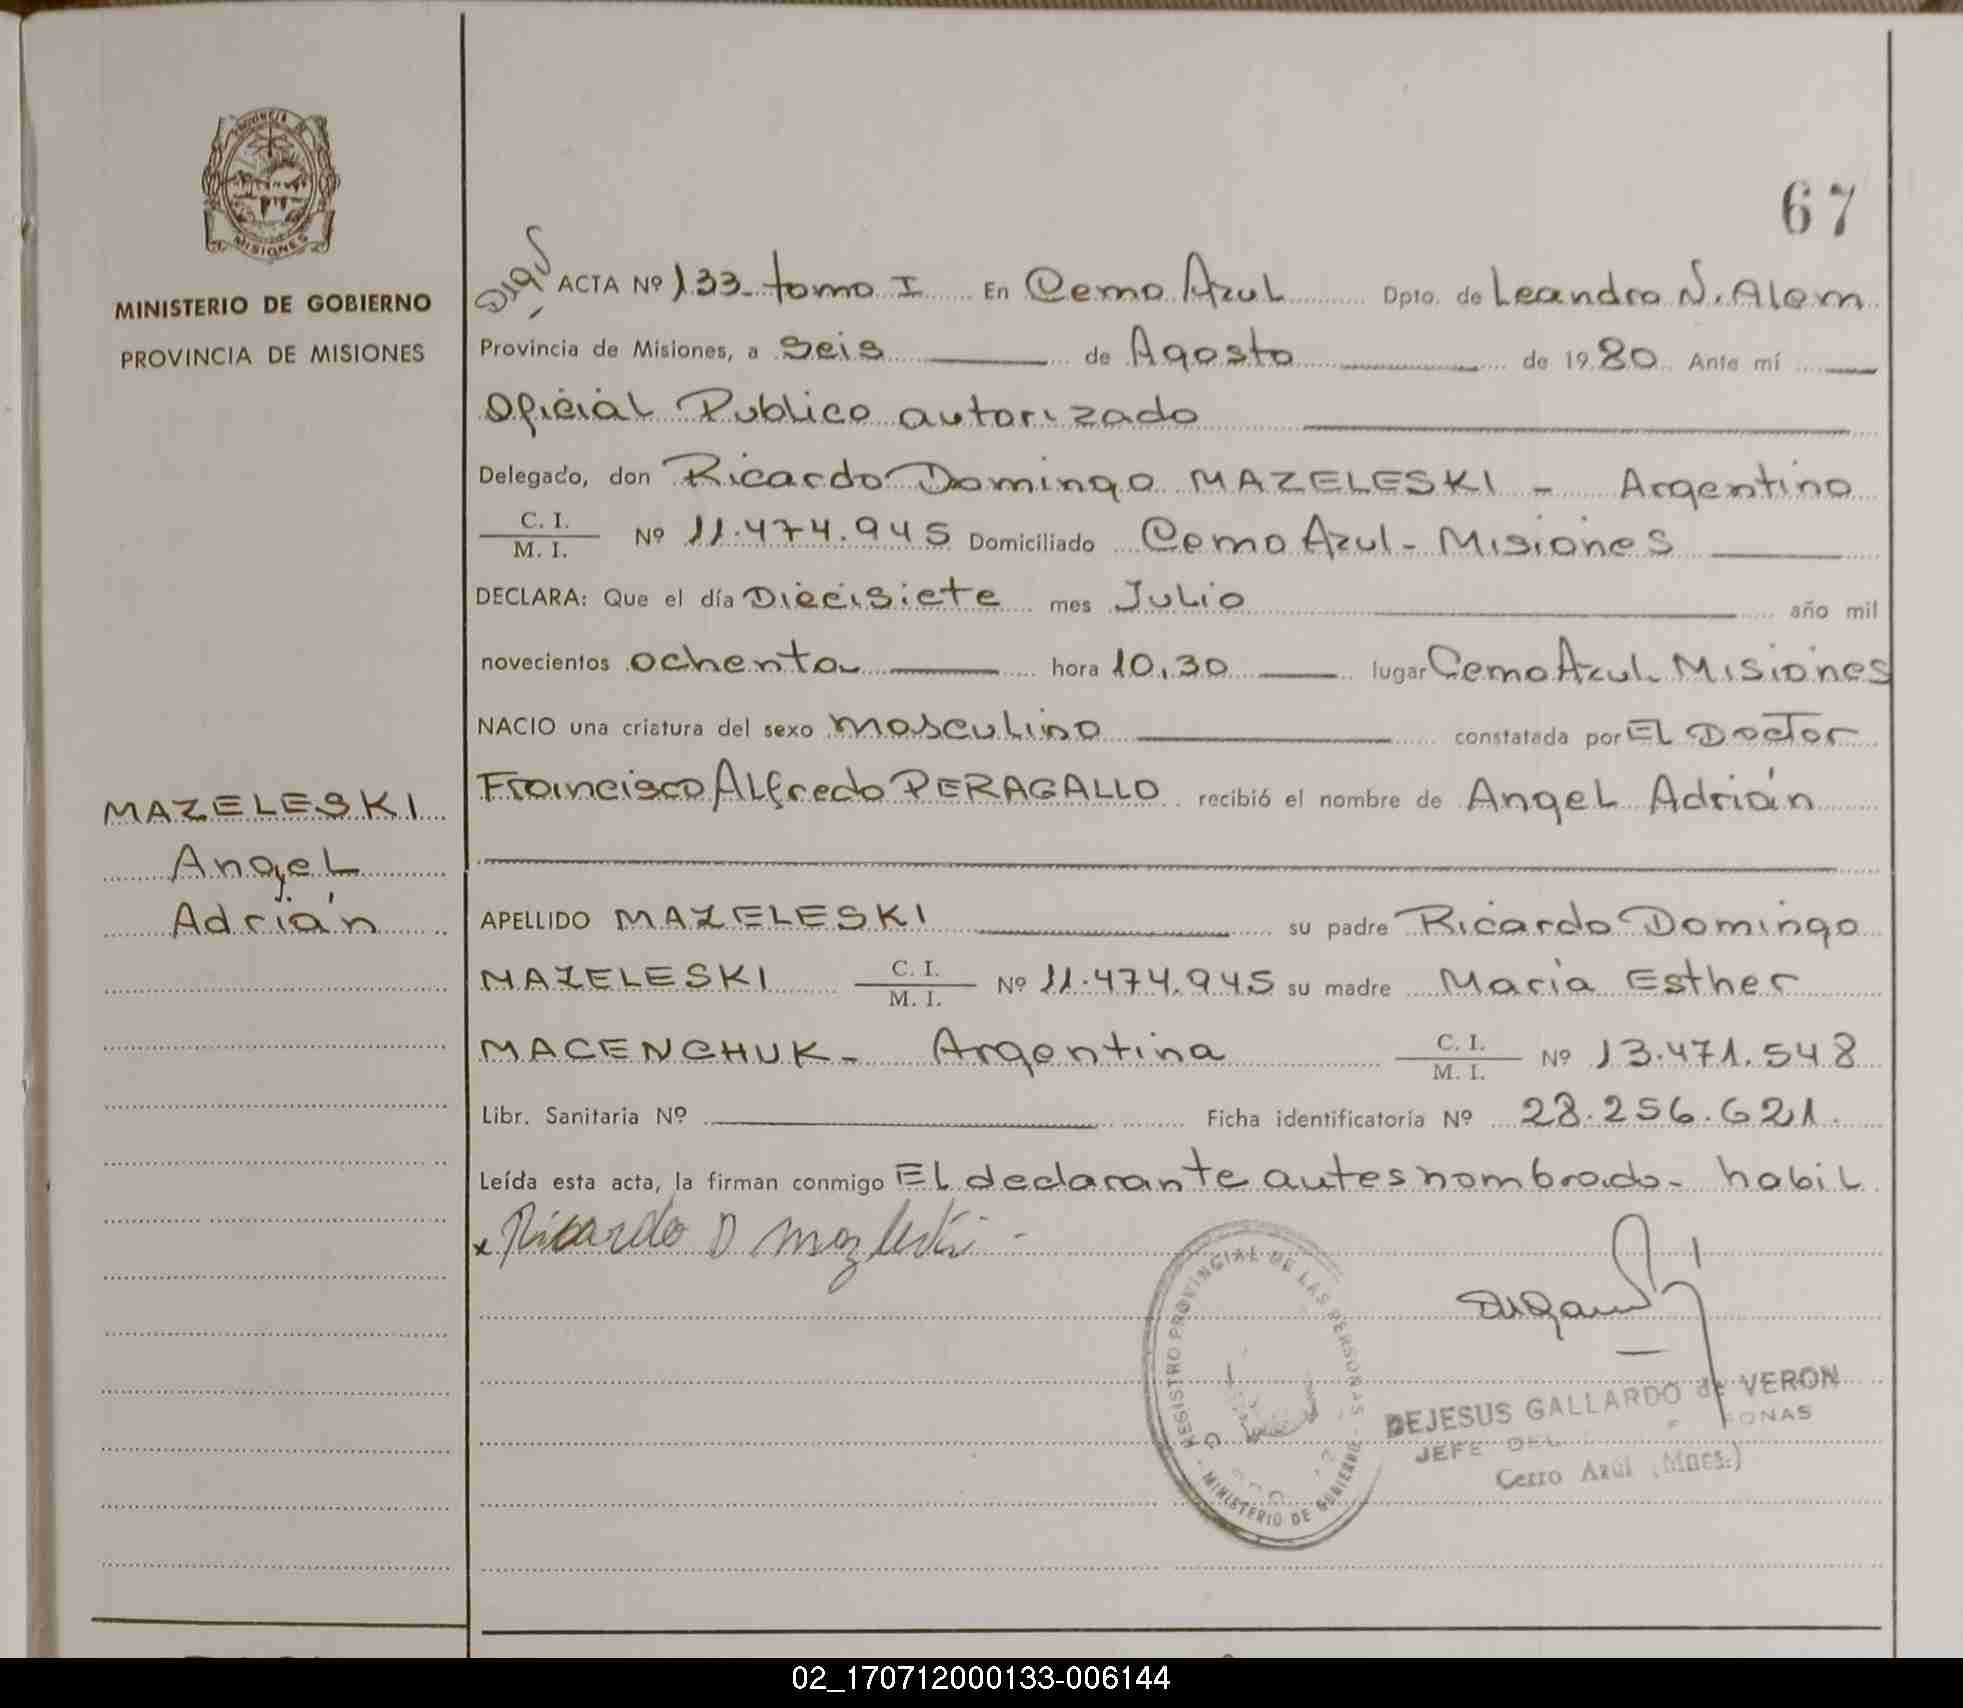 PROVINCIA DE
MISIONES
MINISTERIO DE GOBIERNO
PROVINCIA DE MISIONES
67
ACTA Nº 133_ tomo I En Cerro Azul Dpto. de Leandro N. Alem
Provincia de Misiones, a Seis de Agosto de 1980 Ante mí
Oficial Publico autorizado
Delegado, don Ricardo Domingo MAZELESKI - Argentino
C. I.
M. I. Nº 11.474.945 Domiciliado Cerro Azul - Misiones
DECLARA: Que el día Diecisiete mes Julio año mil
novecientos ochenta hora 10,30 lugar Cerro Azul. Misiones
NACIO una criatura del sexo masculino constatada por El Doctor
Francisco Alfredo PERAGALLO recibió el nombre de Angel Adrián
MAZELESKI
Angel
Adrián
APELLIDO MAZELESKI su padre Ricardo Domingo
MAZELESKI C. I.
M. I. Nº 11.474.945 su madre Maria Esther
MACENCHUK - Argentina C. I.
M. I. Nº 13.471.548
Libr. Sanitaria Nº Ficha identificatoria Nº 28.256.621.
Leída esta acta, la firman conmigo El declarante antes nombrado - habil
x Ricardo D Mazleski -
REGISTRO PROVINCIAL DE LAS PERSONAS - MINISTERIO DE GOBIERNO -
DEJESUS GALLARDO de VERON
JEFE DEL
Cerro Azul (Mnes.)
02_170712000133-006144